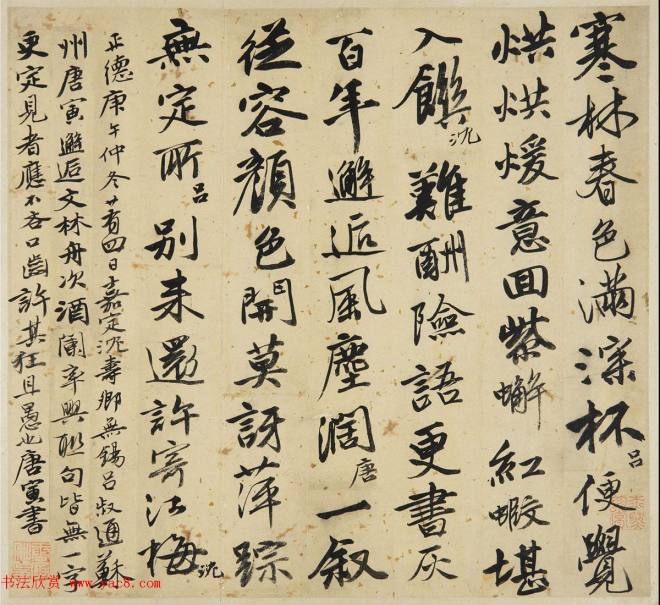 寒林春色滿深杯呂便覺
烘烘煖意回紫蠏紅蝦堪
入饌沈難酬險語更書灰
百年邂逅風塵濶唐一叙
從容顏色開莫訝萍踪
無定所呂別来還許寄江梅沈
正德庚午仲冬廿有四日嘉定沈壽卿無錫呂叔通蘇
州唐寅邂逅文林舟次酒闌率興聯句皆無一字
更定見者應不吝口齒許其狂且愚也唐寅書
书法欣赏 www.yac8.com